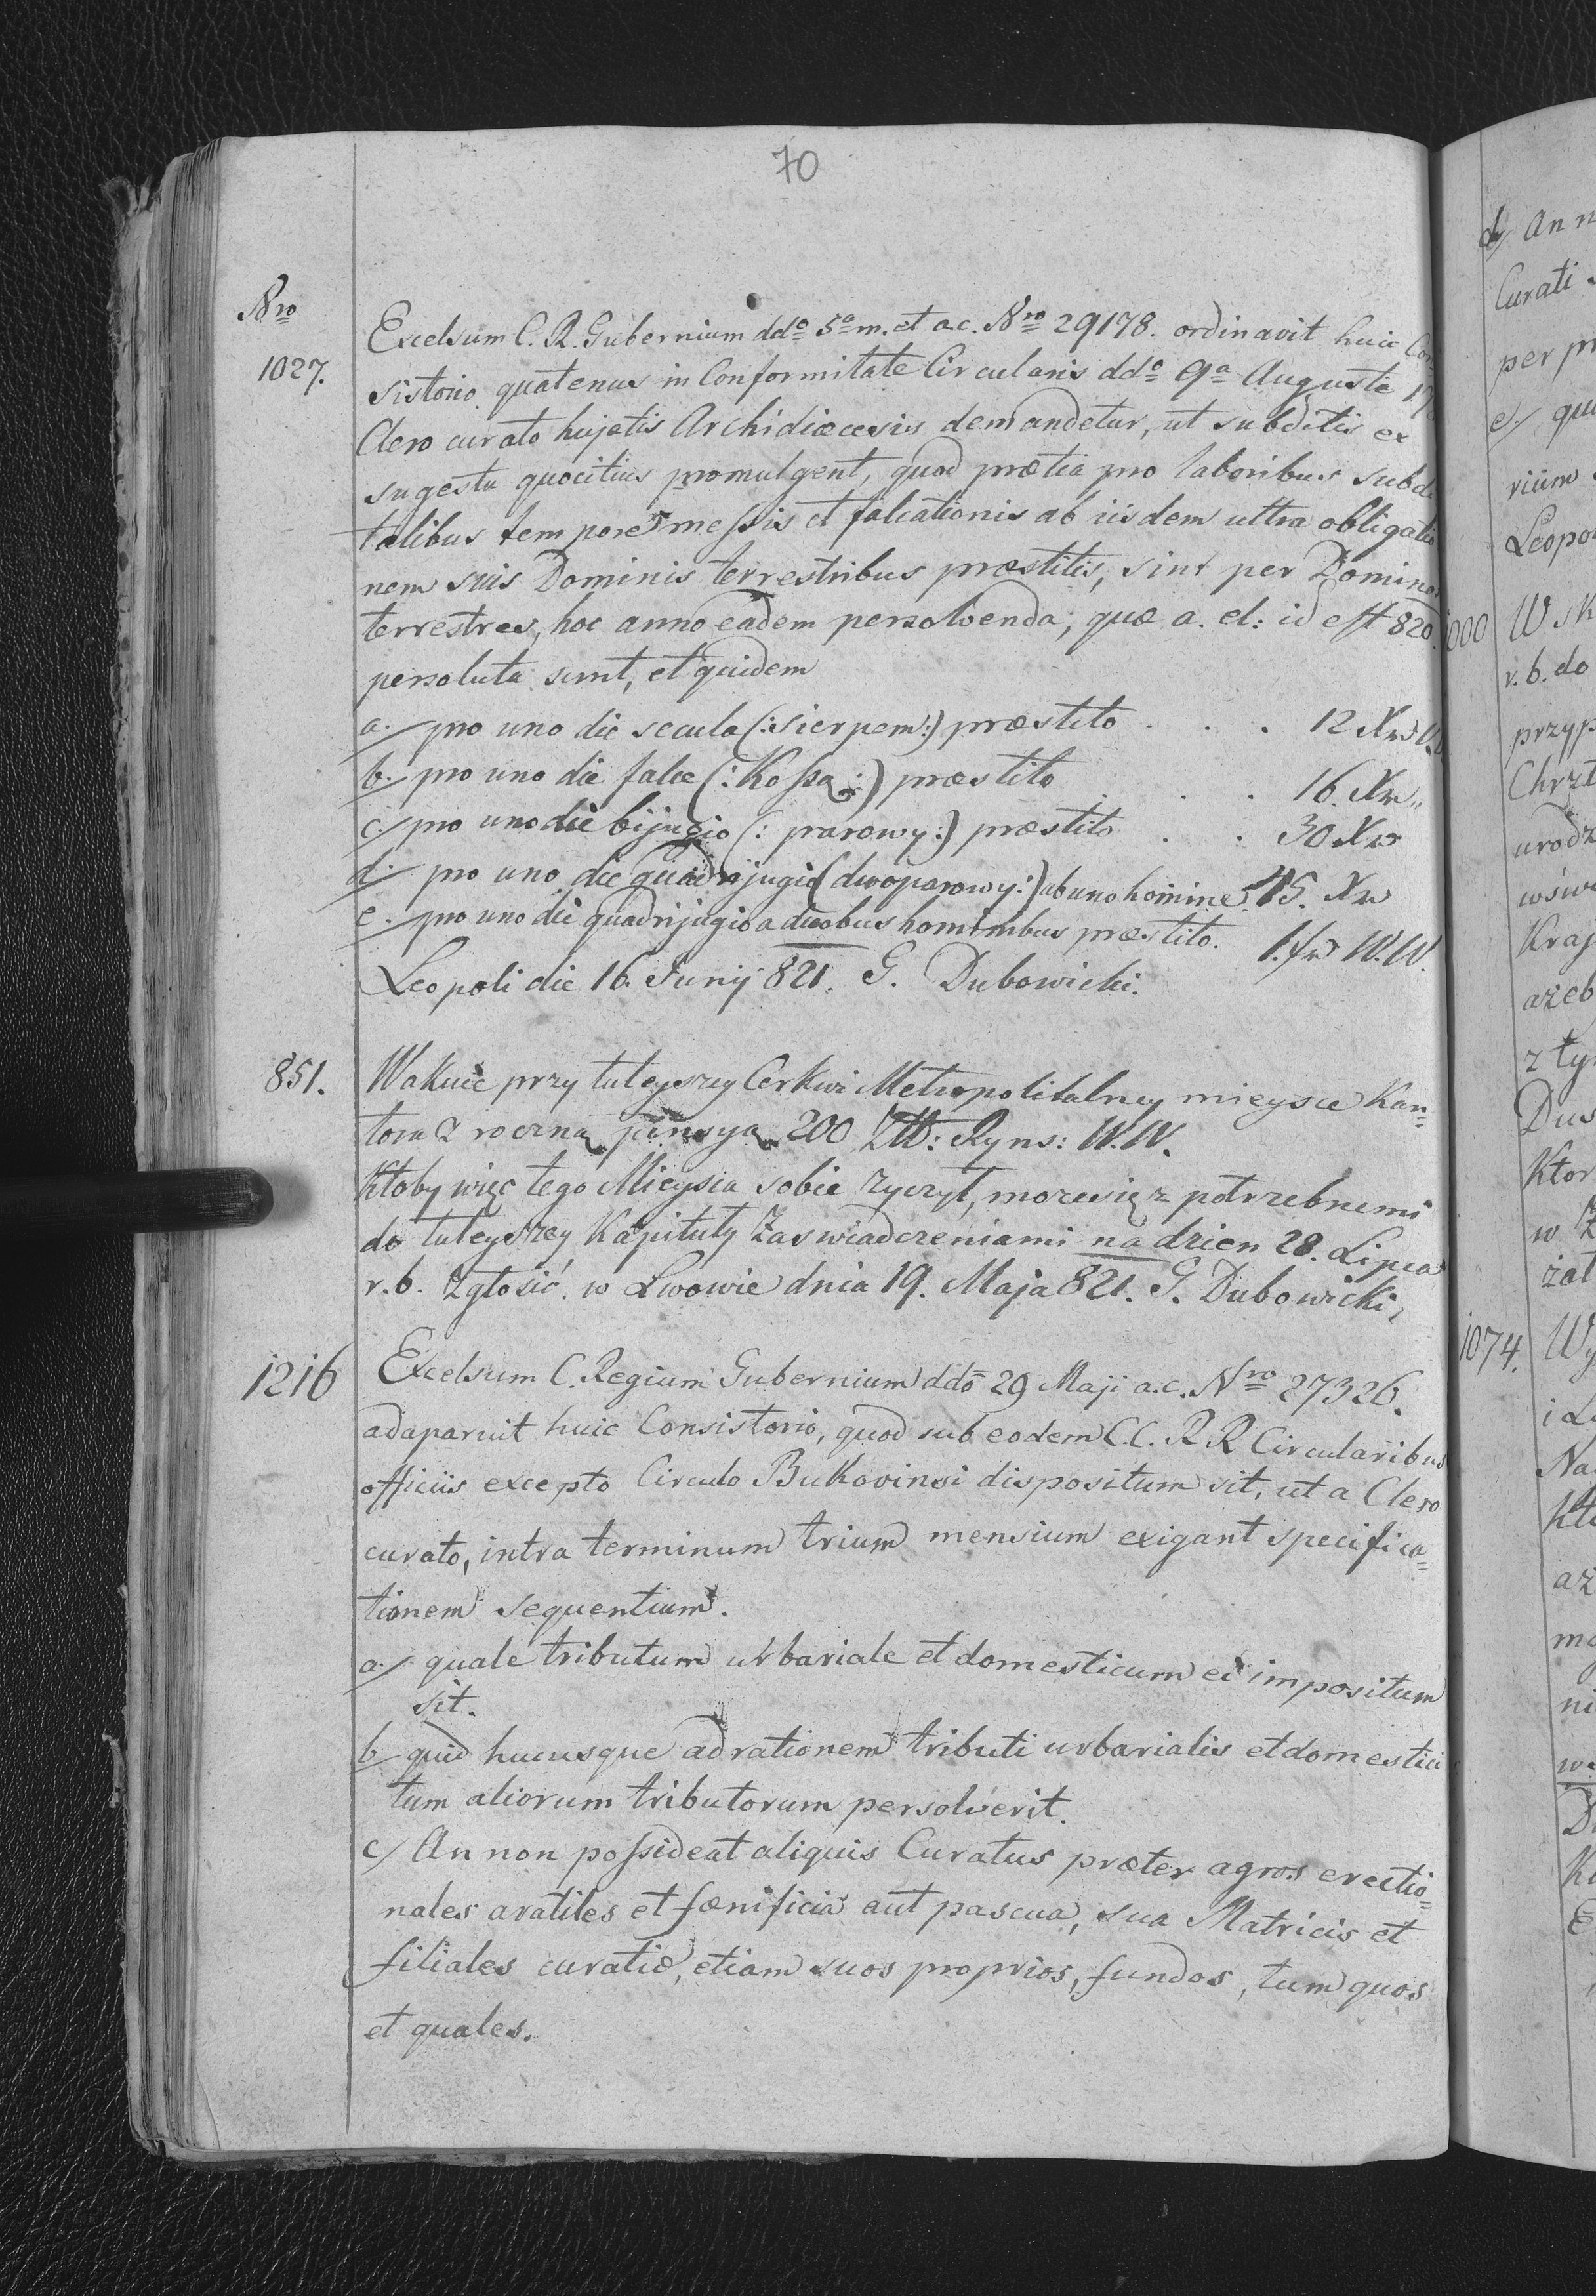 70
Nro
1027.
Excelsum C. R. Gubernium ddo 5o m. et a.c. Nro 29178. ordinavit huic Con
sistorio quatenus in Conformitate Circularis ddo 9a Augusta 17
Clero curato hujatis Archidiœcesis demandetur, ut subditis ex
sugestu quocitius promulgent, quod prætia pro laboribus subdi
talibus tempore messis et falcationis ab iisdem ultra obligatio
nem suis Dominis terrestribus præstitis, sint per Domino
terrestres, hoc anno eadem persolvenda, quæ a. el: id est 820.
persoluta sunt, et quidem
a./ pro uno die secula (: sierpem :) præstito . . . 12 Xr
b./ pro uno die falce (: Kossą :) præstito . . . 16. Xr „
c./ pro uno die bijugio (: parowy :) præstito . . 30 Xr
d./ pro uno die quadrijugio (dwoparowy :) ab uno homine 45. Xr
e./ pro uno die quadrijugio a duobus hominibus præstito. 1. fr W.W.
Leopoli die 16. Junij 821. G. Dubowicki.
851.
Wakuie przy tuteyszey Cerkwi Metropolitalney mieysce Kan=
tora z roczną pensyą 200 Złt: Ryns: W.W.
Ktoby więc tego Mieysca sobie życzył, może się z potrzebnemi
do tuteyszey Kapituły Zaswiadczeniami na dzien 28. Lipca
r. b. Zgłosić. w Lwowie dnia 19. Maja 821. G. Dubowicki,
1216
Excelsum C. Regium Gubernium ddō 29 Maji a.c. Nro 27326.
adaparuit huic Consistorio, quod sub eodem CC. R R Circularibus
officiis excepto Circulo Bukovinsi dispositum sit, ut a Clero
curato, intra terminum trium mensium exigant specifica=
tionem sequentium.
a./ quale tributum urbariale et domesticum ei impositum
sit.
b/ quid hucusque ad rationem tributi urbarialis et domestici
tum aliorum tributorum persolverit.
c/ An non possideat aliquis Curatus præter agros erectio=
nales aratiles et fœnificia aut pascua, sua Matricis et
filiales curatiæ, etiam suos proprios, fundos, tum quos
et quales.
d/ An n
Curati
per pr
e./ qu
rium
Leopo
1000
W sk
r. b. do
przyp
Chrzt
urodz
wśw
Kraj
ażeb
z ty
Dus
Ktor
w
żał
1074.
Wy
i L
Na
Kto
aż
mo
ni